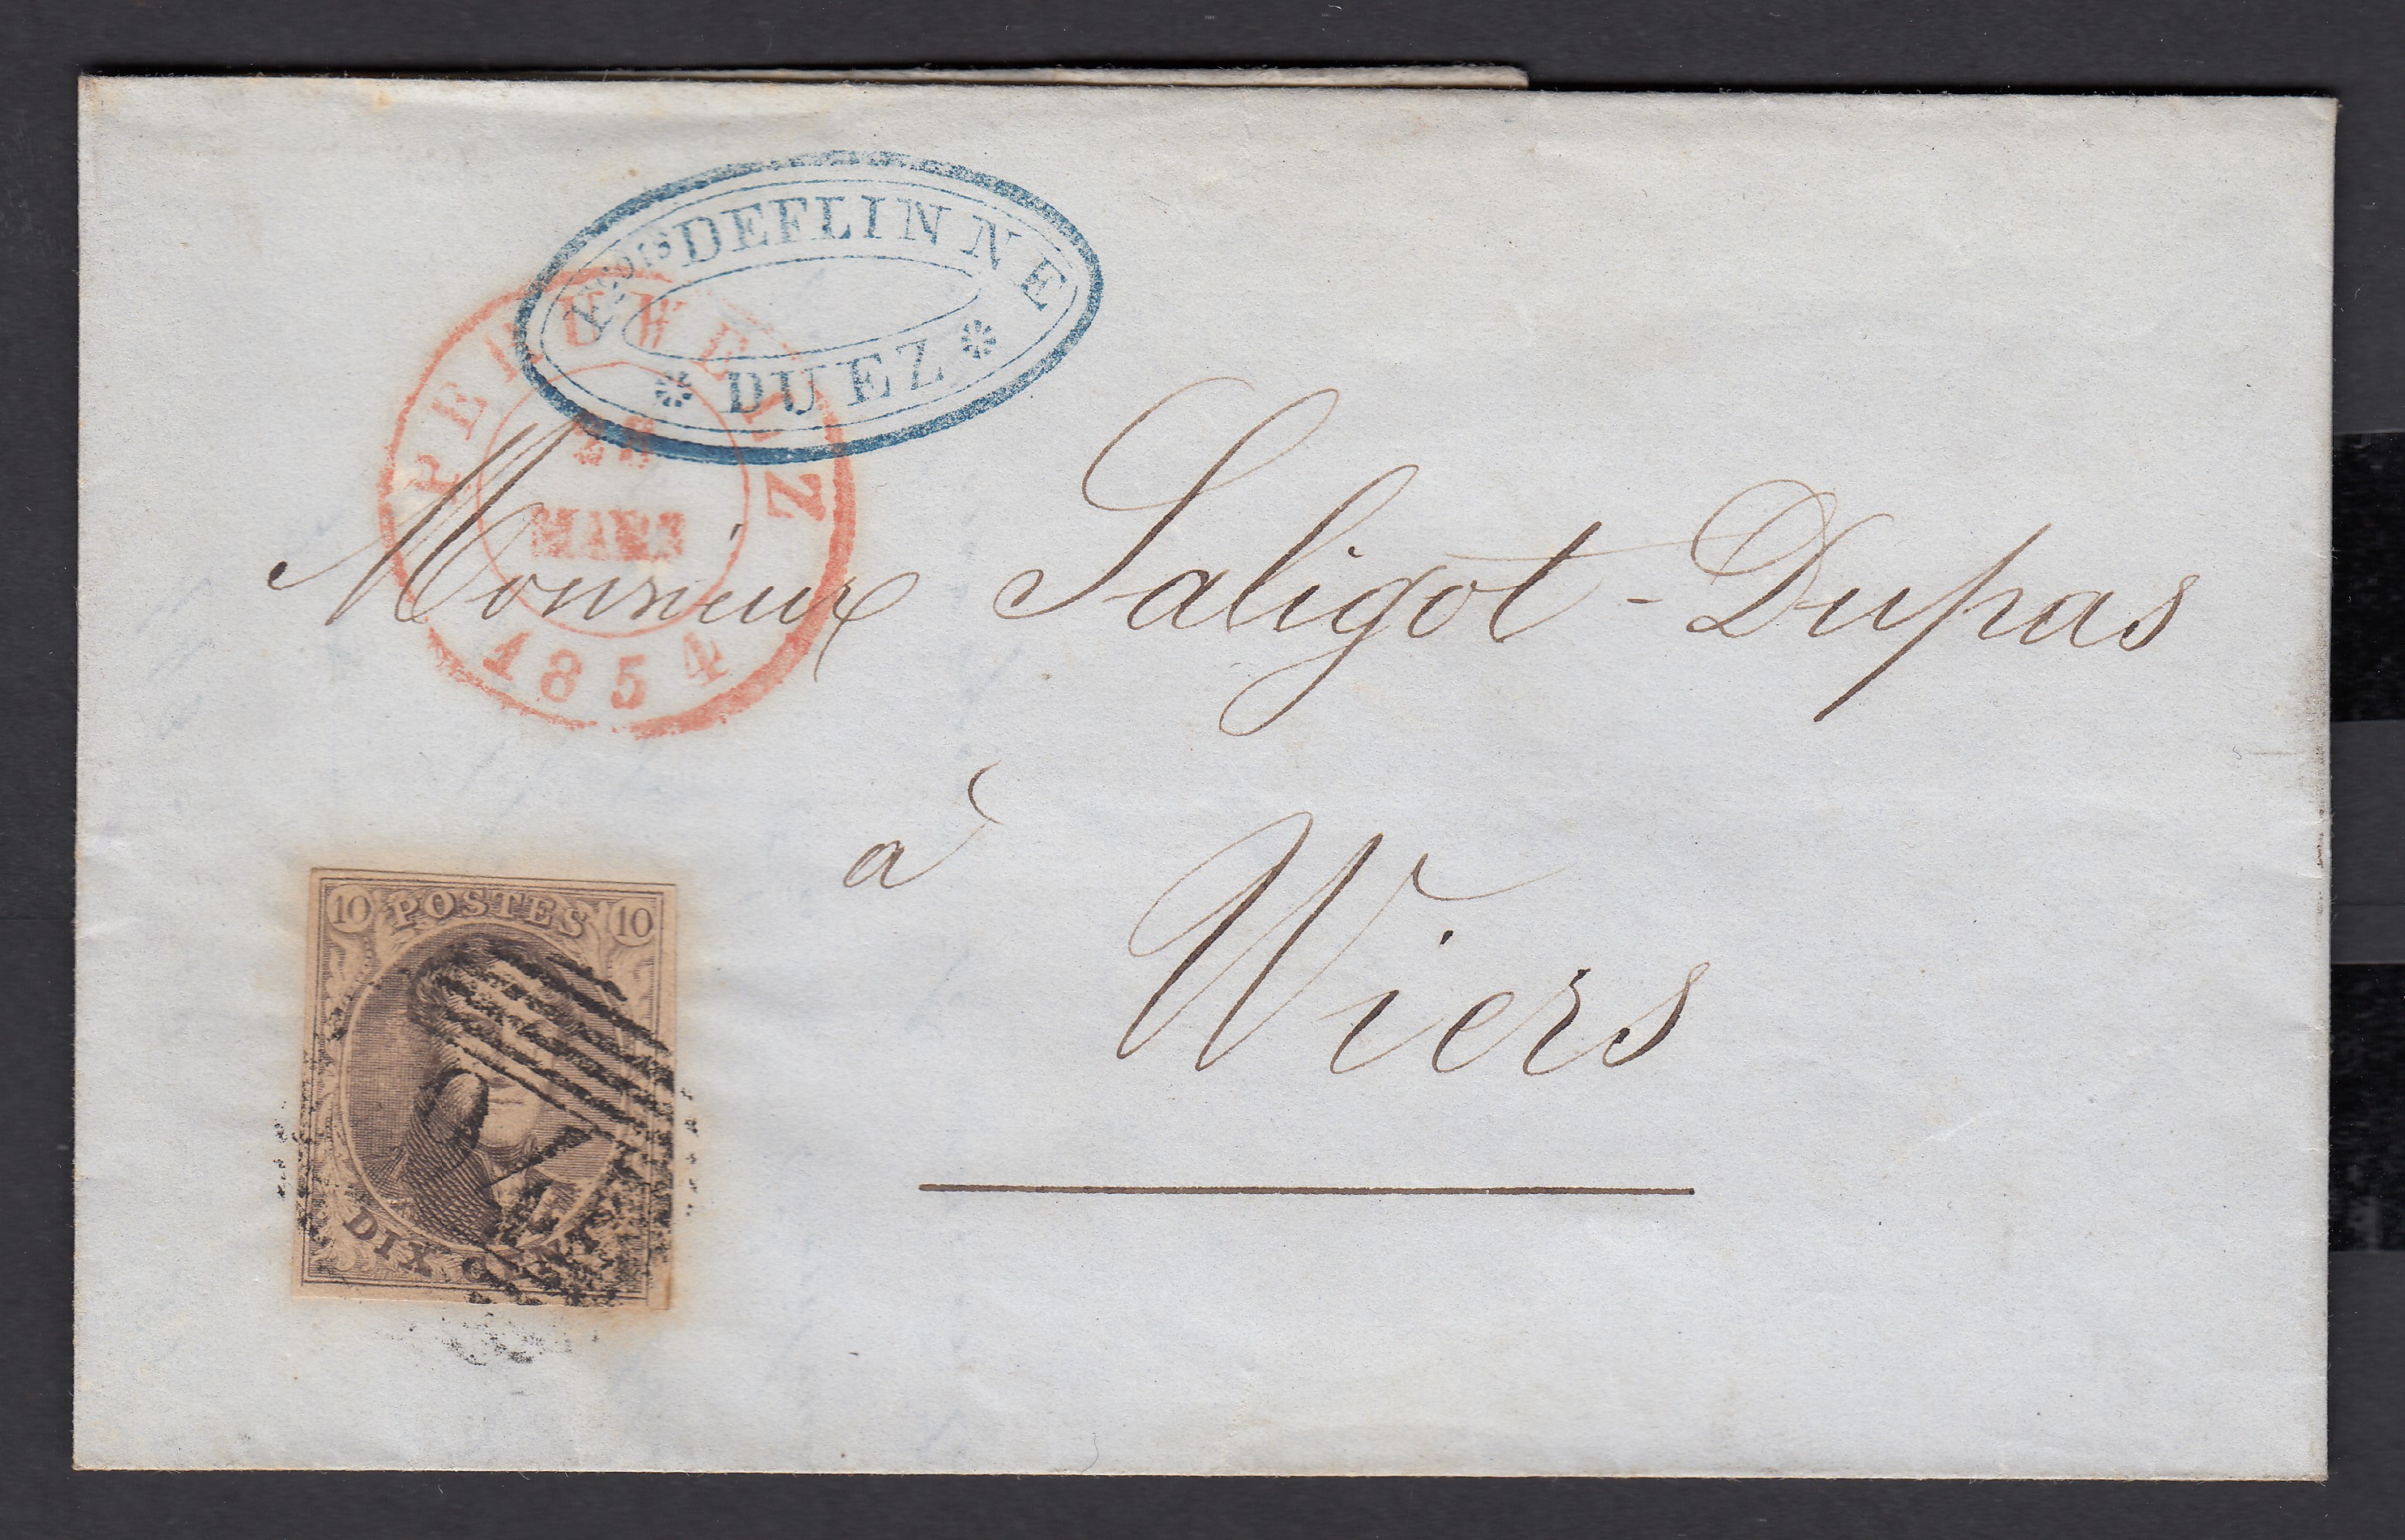 Fçois DEFLINNE
DUEZ
PERUWELZ
MARS
1854
Monsieur Saligot-Dupas
à
Wiers
10 POSTES 10
DIX CENT